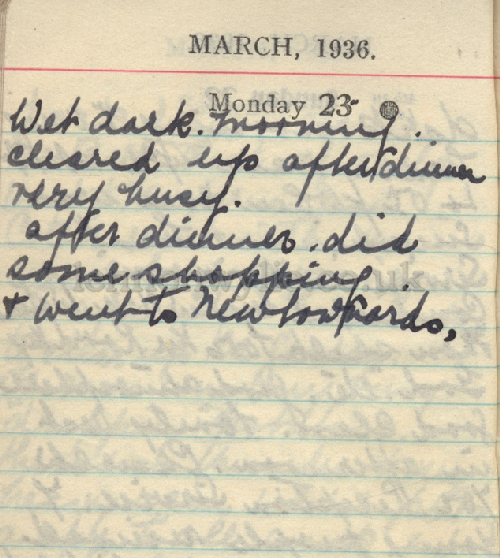 MARCH, 1936.
Monday 23
Wet dark. morning.
cleared up after dinner
very busy.
after dinner. did
some shopping.
& went to Newtownards,